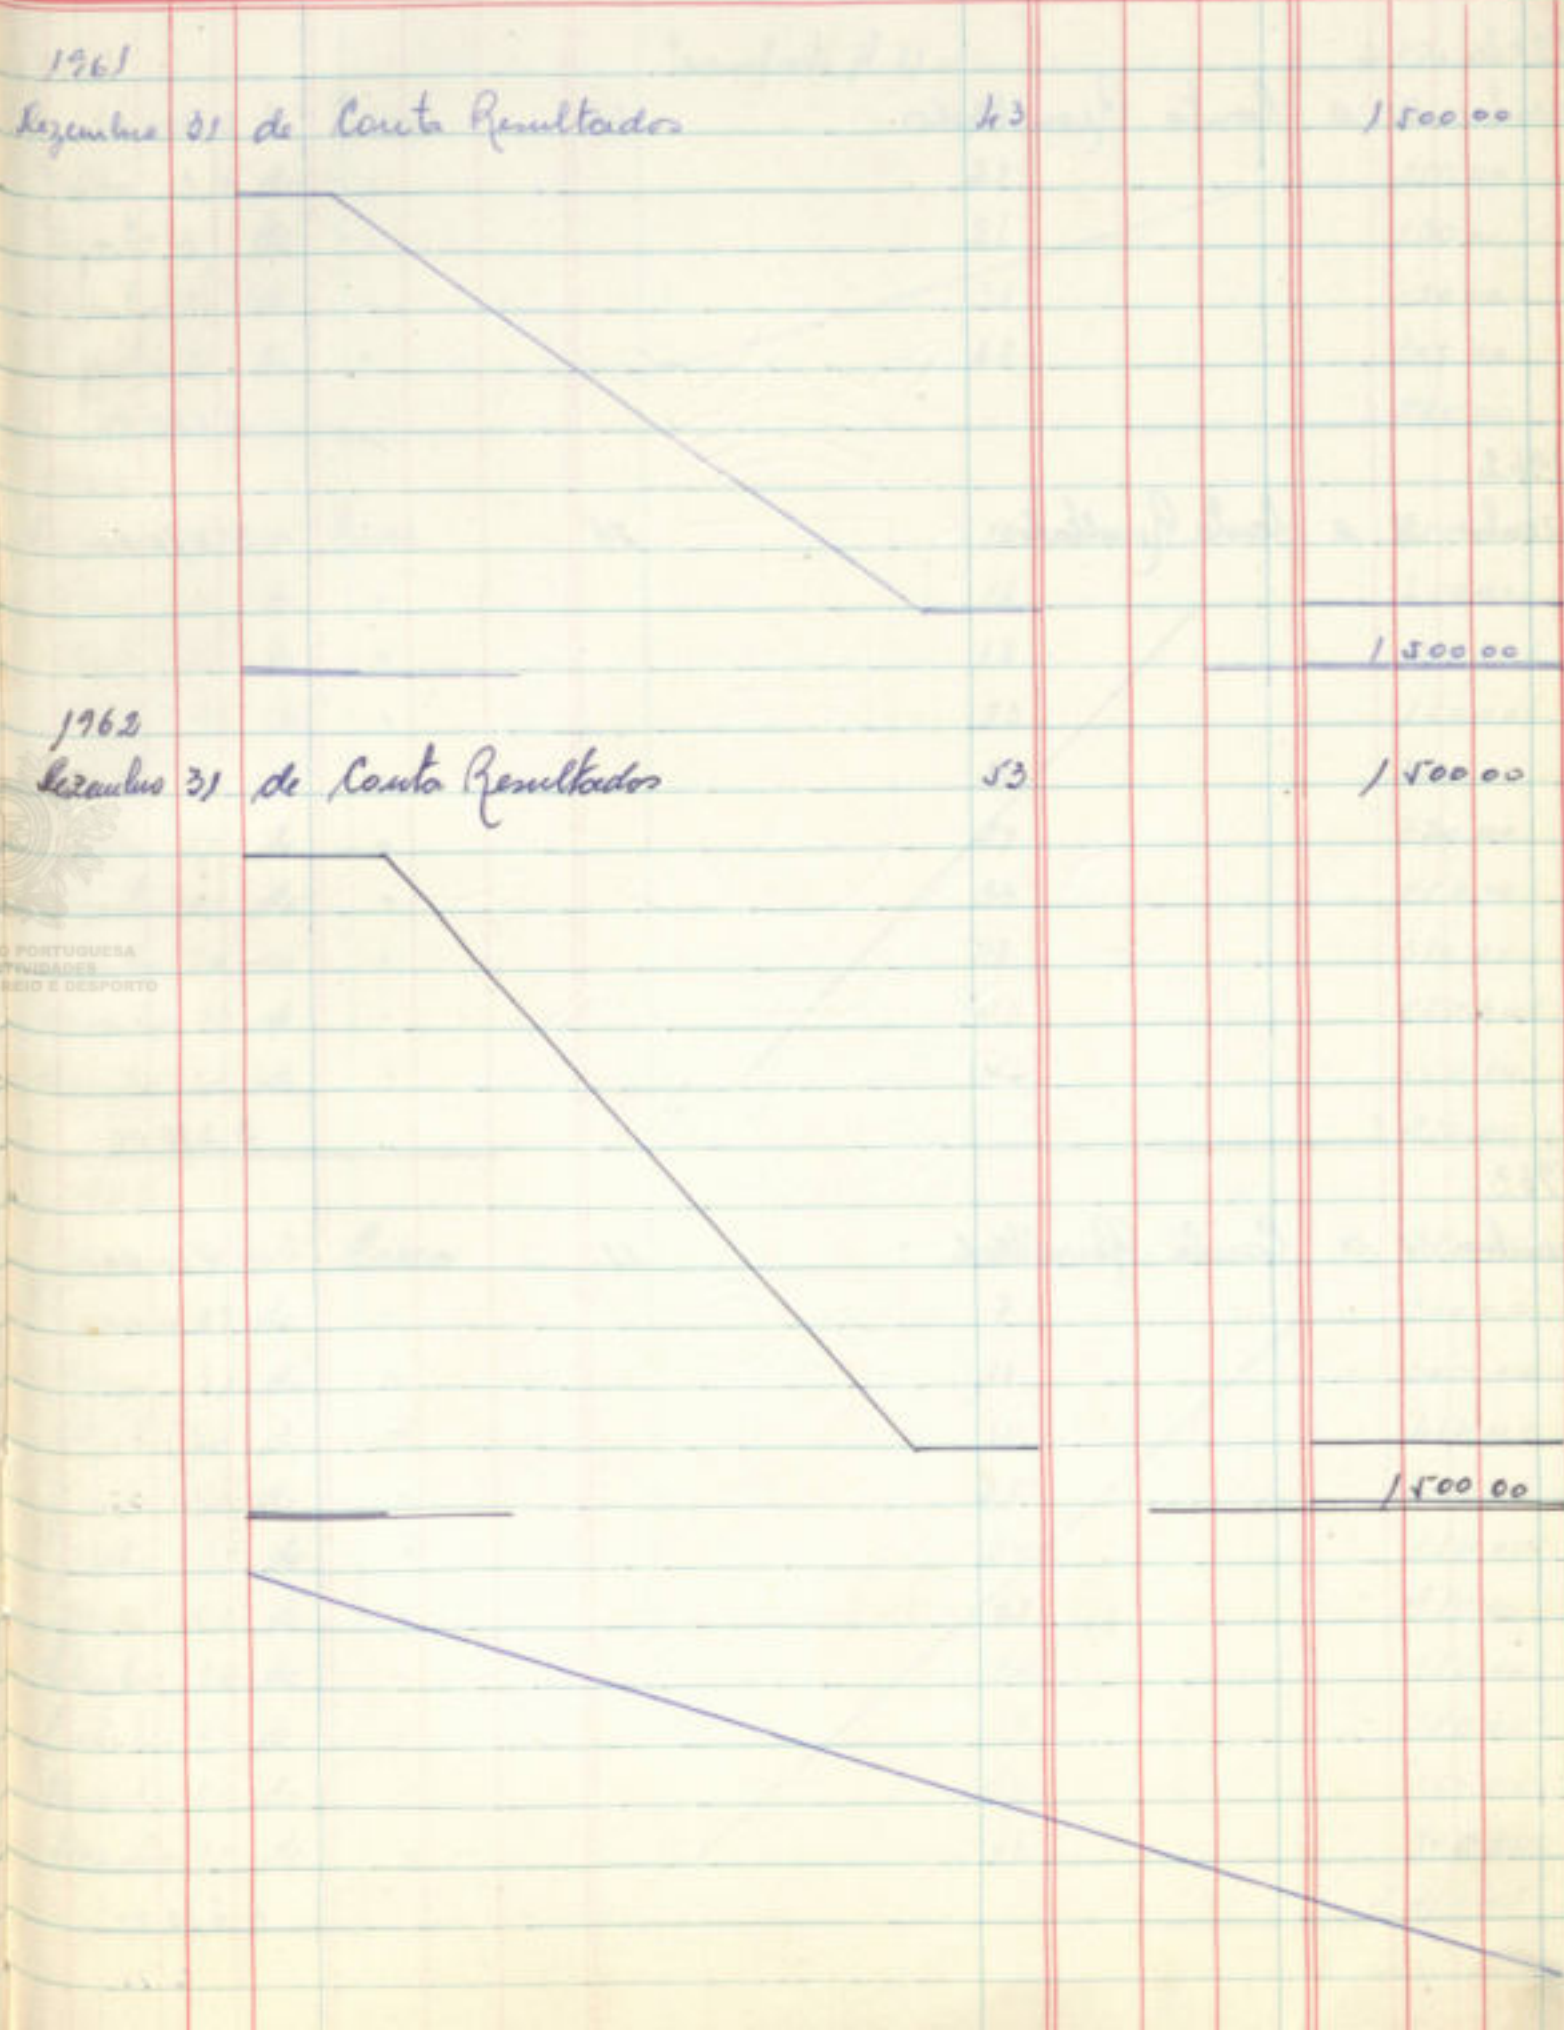 1961
Dezembro 31 de Conta Resultados 43 1 500 00
1 500 00
1962
Dezembro 31 de Conta Resultados 53 1 500 00
O PORTUGUESA
REIO E DESPORTO
1 500 00